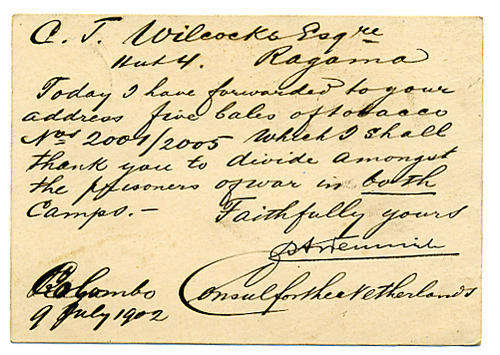 C. T. Wilcocks Esqre
Hut 4. Ragama
Today I have forwarded to your
address five bales of tobacco
Nos 2001/2005 which I shall
thank you to divide amongst
the prisoners of war in both
Camps.- Faithfully yours
Colombo Consul for the Netherlands
9 July 1902